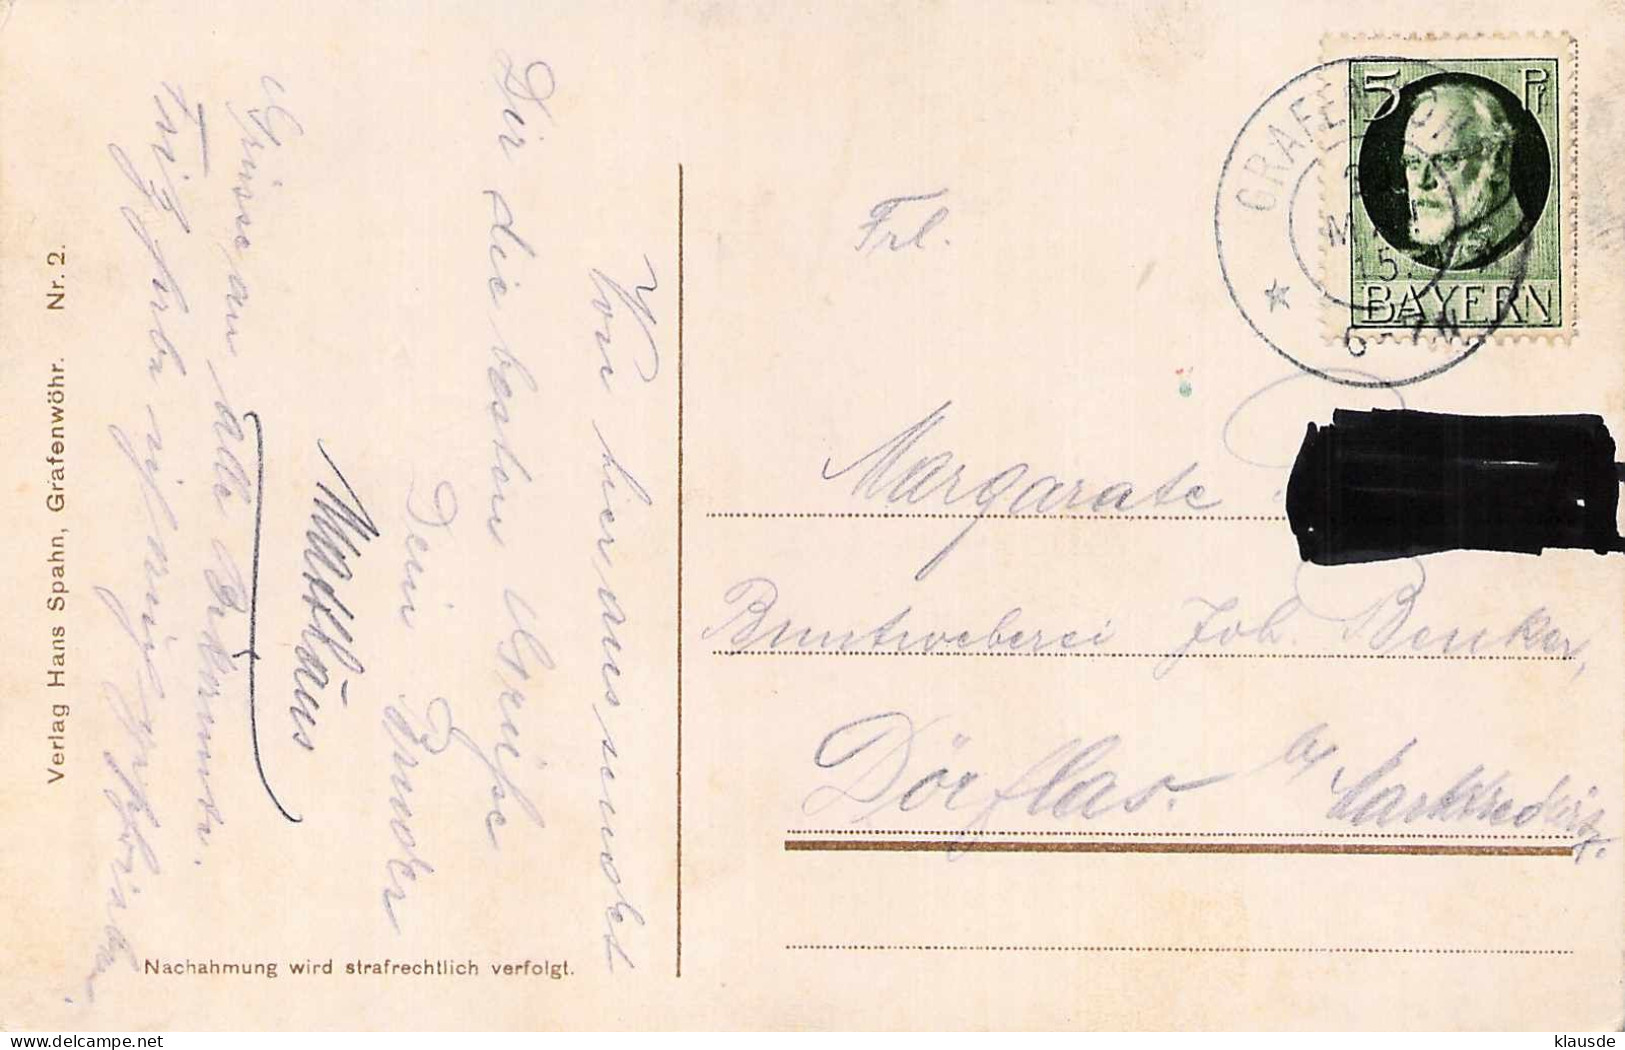 Verlag Hans Spahn, Grafenwöhr. Nr. 2.
Von hier aus sendet
Dir die besten Grüße
Dein Bruder
Matthäus
Grüsse an
alle Bekannte.
Nachahmung wird strafrechtlich verfolgt.
5 Pf
BAYERN
15.
6-7N
Frl.
Margarate
Buntweberei Joh. Benker,
Dörflas. by Marktredwitz.
delcampe.net
klausde